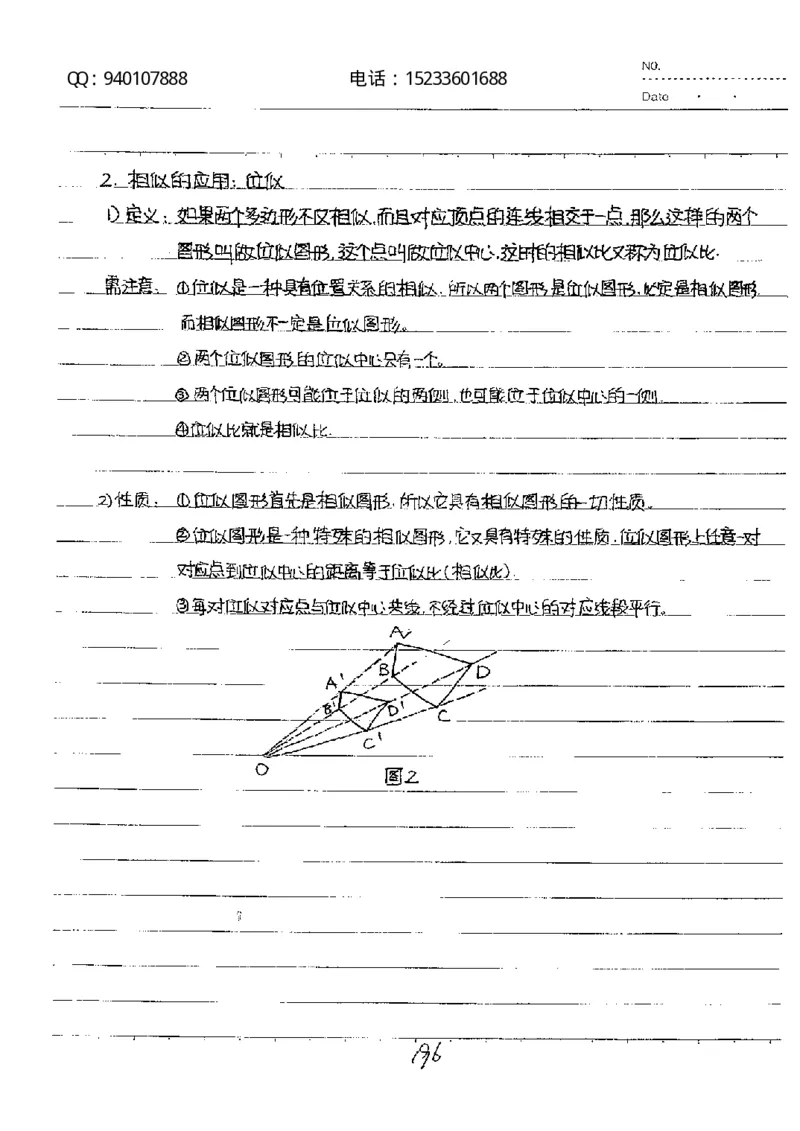 QQ：940107888 电话：15233601688 NO.
Date
2. 相似的应用：位似
1) 定义：如果两个多边形不仅相似,而且对应顶点的连线相交于一点,那么这样的两个
图形叫做位似图形,这个点叫做位似中心,这时的相似比又称为位似比.
需注意：①位似是一种具有位置关系的相似、所以两个图形是位似图形,必定是相似图形
而相似图形不一定是位似图形。
②两个位似图形的位似中心只有一个。
③两个位似图形可能位于位似的两侧,也可能位于位似中心的一侧。
④位似比就是相似比.
2) 性质：①位似图形首先是相似图形,所以它具有相似图形的一切性质。
②位似图形是一种特殊的相似图形,它又具有特殊的性质,位似图形上任意一对
对应点到位似中心的距离等于位似比(相似比).
③每对位似对应点与位似中心共线,不经过位似中心的对应线段平行。
A
B D
A'
B' D' C
C'
O
图2
196